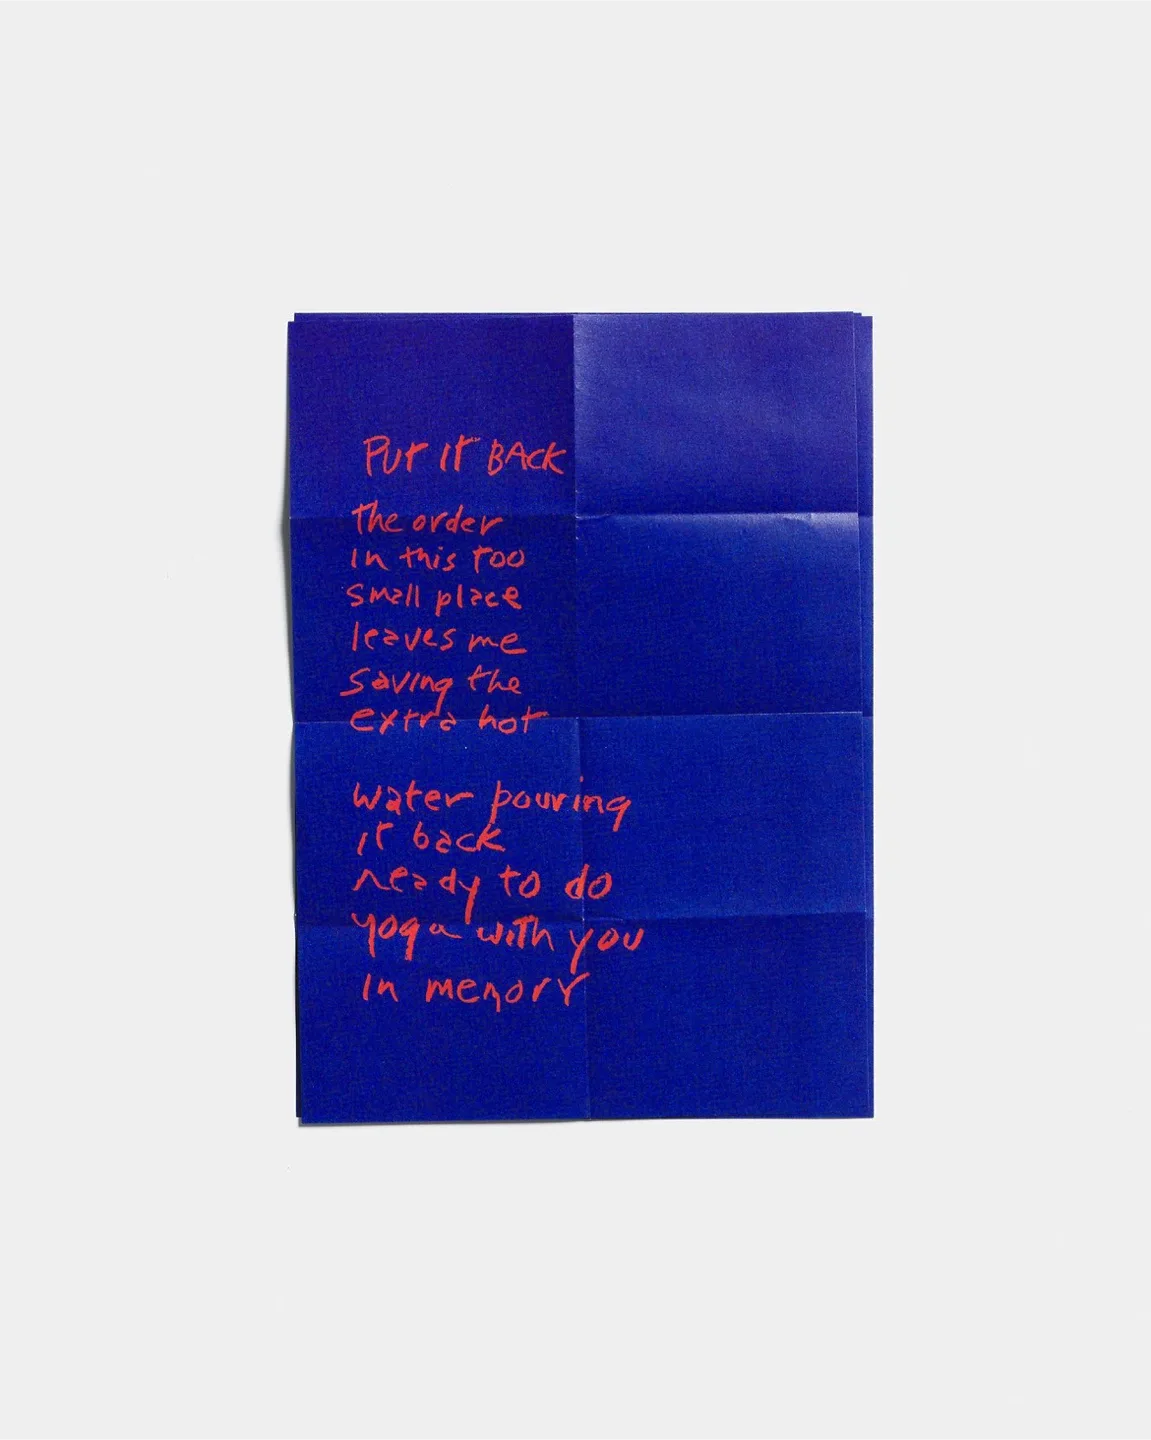 PUT IT BACK
the order
in this too
small place
leaves me
saving the
extra hot
water pouring
it back
ready to do
yoga with you
in memory